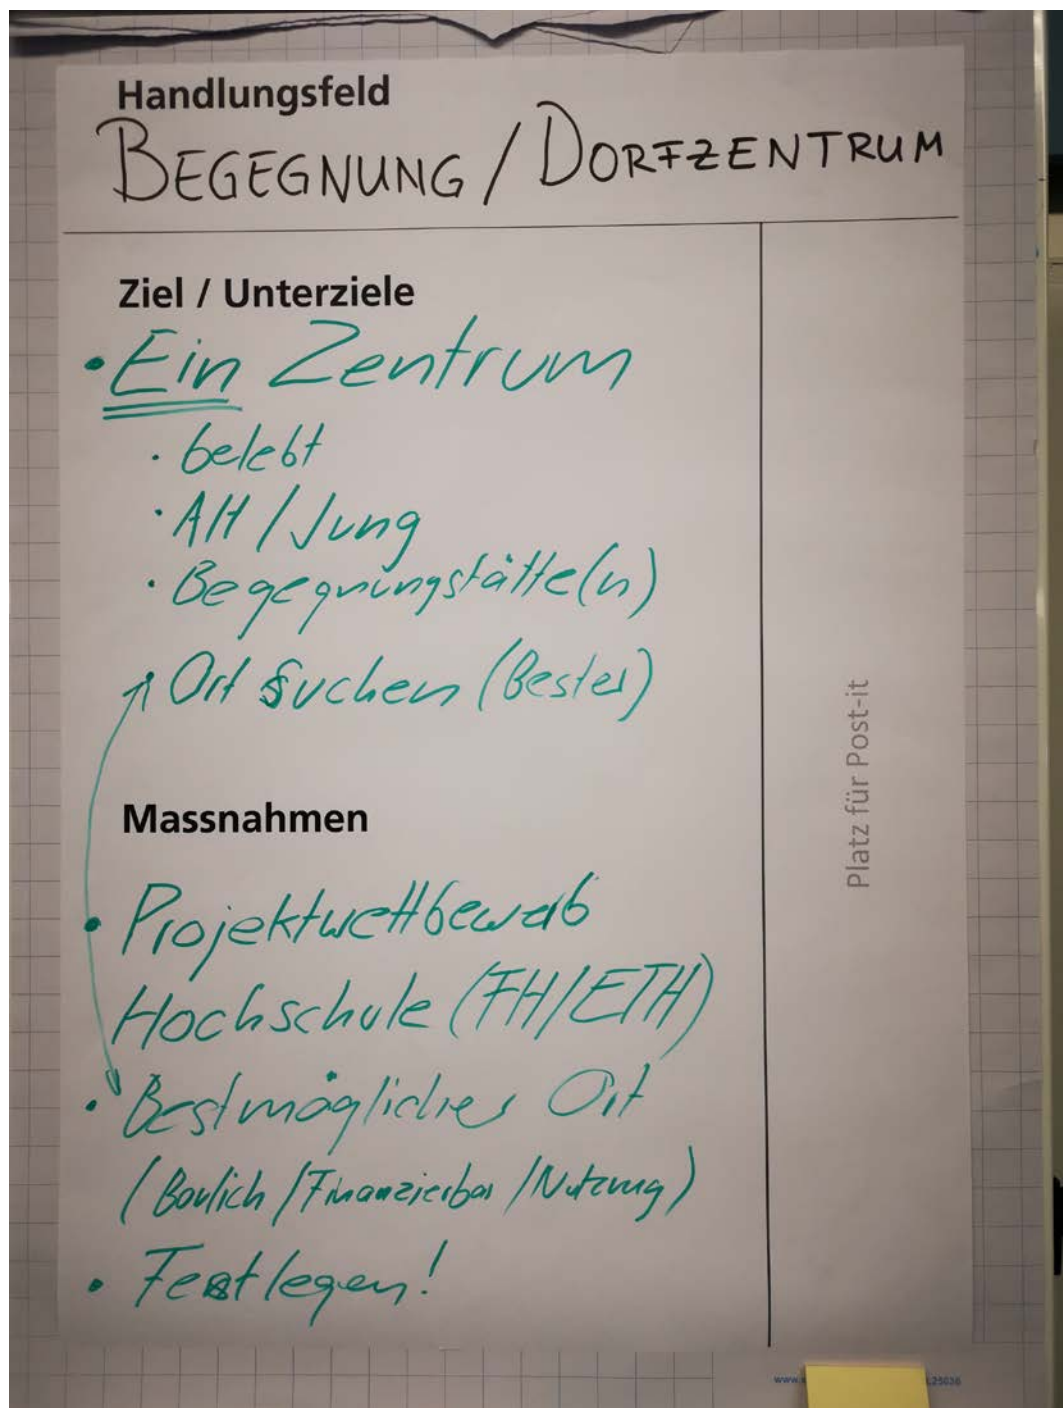 Handlungsfeld
BEGEGNUNG / DORFZENTRUM
Ziel / Unterziele
• Ein Zentrum
• belebt
• Alt / Jung
• Begegnungstätte(n)
Ort suchen (Bester)
Massnahmen
• Projektwettbewerb
Hochschule (FH/ETH)
• Bestmöglicher Ort
(Baulich / Finanzierbar / Nutzung)
• Festlegen!
Platz für Post-it
www.
25036